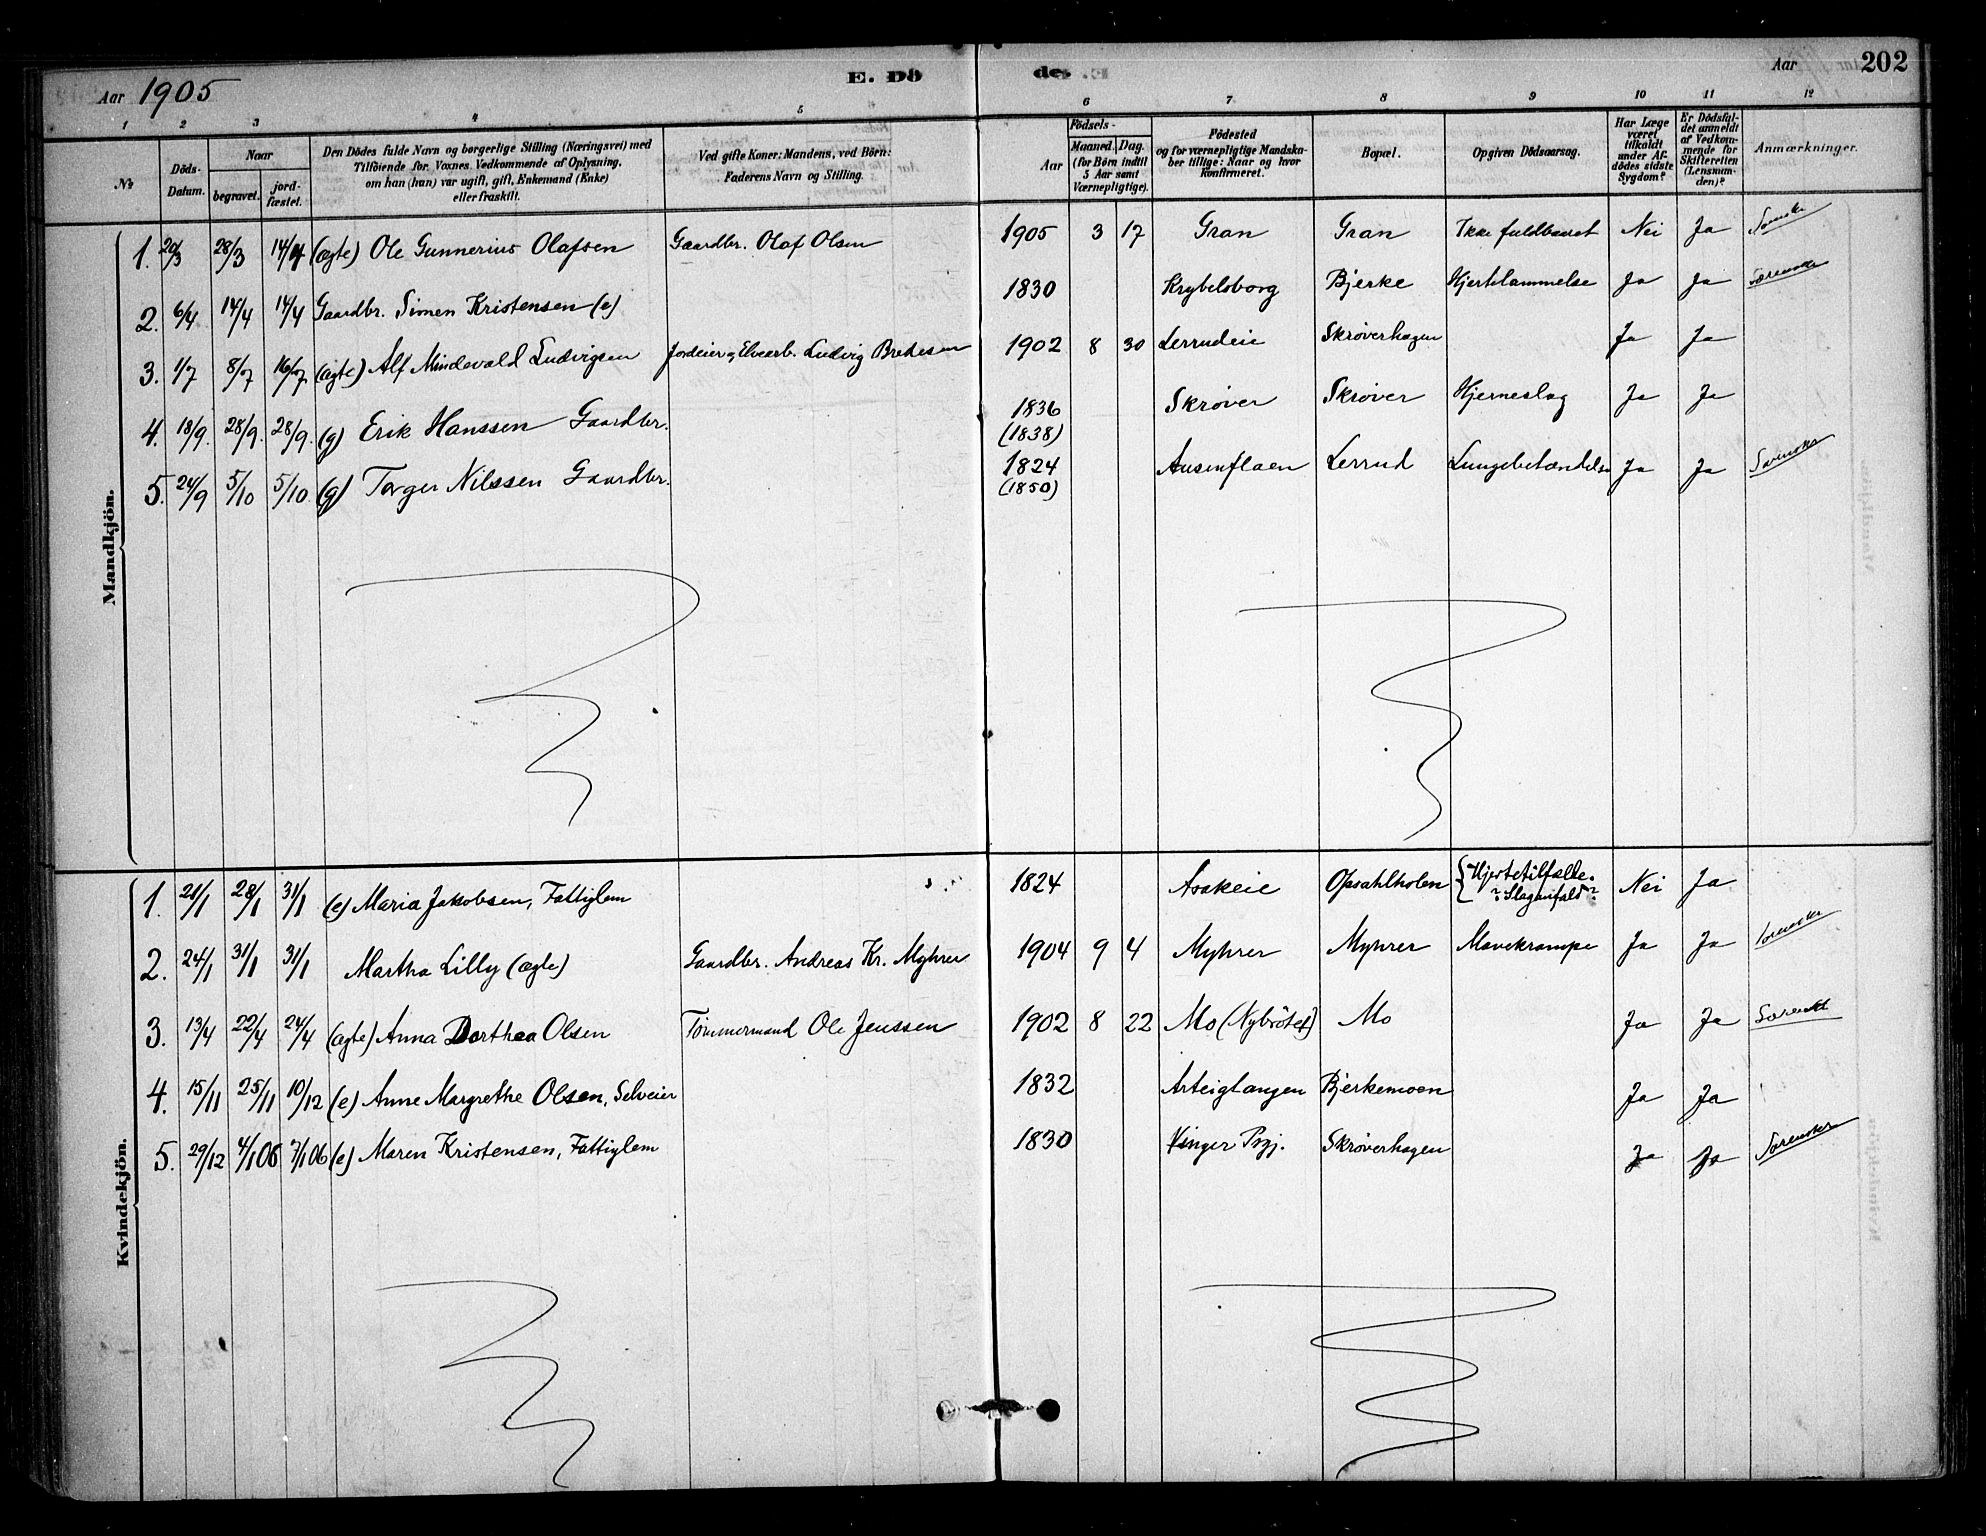 Aar 1905 E. Dö de. Aar 202
1 2 3 4 5 6 7 8 9 10 11 12
No Döds-Datum. Naar begravet. jord-fæstet. Den Dödes fulde Navn og borgerlige Stilling (Næringsvei) med Tilföiende for Voxnes Vedkommende af Oplysning, om han (hun) var ugift, gift, Enkemand (Enke) eller fraskilt. Ved gifte Koner: Mandens, ved Börn: Faderens Navn og Stilling. Födsels- Aar Maaned. Dag. (for Börn indtil 5 Aar samt Værnepligtige). Födested og for værnepligtige Mandska-ber tillige: Naar og hvor Konfirmeret. Bopæl. Opgiven Dödsaarsag. Har Læge været tilkaldt under Af-dödes sidste Sygdom? Er Dödsfal-det anmeldt af Vedkom-mende for Skifteretten (Lensman-den)? Anmærkninger.
Mandkjön.
1. 20/3 28/3 14/4 (ægte) Ole Gunnerius Olafsen Gaardbr. Olaf Olsen 1905 3 17 Gran Gran Ikke fuldbaaret Nei Ja
2. 6/4 14/4 14/4 Gaardbr. Simen Kristensen (e) 1830 Krybelsborg Bjerke Hjertelammelse Ja Ja
3. 1/7 8/7 16/7 (ægte) Alf Mindevald Ludvigsen Jordeier og Elvearb. Ludvig Bredesen 1902 8 30 Lerrudeie Skrøverhagen Ja Ja
4. 18/9. 28/9. 28/9. (g) Erik Hanssen Gaardbr. 1836 (1838) Skrøver Skrøver Hjerneslag Ja Ja
5. 24/9 5/10 5/10 (g) Torger Nilssen Gaardbr. 1824 (1850) Ausenflaen Lerrud Lungebetændelse Ja Ja
Kvindekjön.
1. 21/1 28/1 31/1 (e) Maria Jakobsen, Fattiglem 1824 Aaakeie Opsahlholen Hjertetilfælle. ? Slaganfald? Nei Ja
2. 24/1 31/1 31/1 Martha Lilly (ægte) Gaardbr. Andreas Kr. Myhrer 1904 9 4 Myhrer Myhrer Mavekrampe Ja Ja
3. 13/4 22/4 24/4 (ægte) Anna Dorthea Olsen Tømmermand Ole Jenssen 1902 8 22 Mo (Nybrötet) Mo Ja Ja
4. 15/11 25/11 10/12 (e) Anne Margrethe Olsen, Selveier 1832 Arteigtangen Bjerkemoen Ja Ja
5. 29/12 4/1 06 7/1 06 (e) Maren Kristensen, Fattiglem 1830 Vinger Prgj. Skrøverhagen Ja Ja